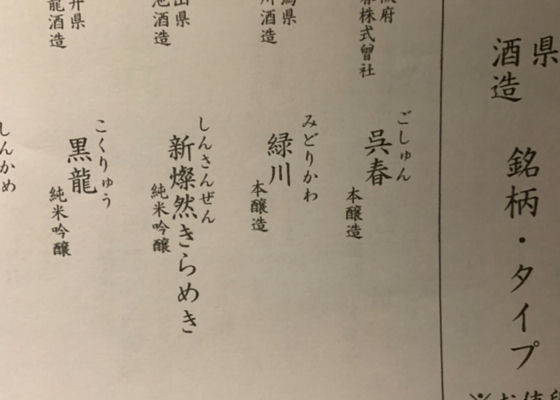 県
酒造
銘柄・タイプ
府
株式曾社
ごしゅん
呉春
本醸造
県
川酒造
みどりかわ
緑川
本醸造
県
酒造
しんさんぜん
新燦然きらめき
純米吟醸
井県
龍酒造
こくりゅう
黒龍
純米吟醸
しんかめ